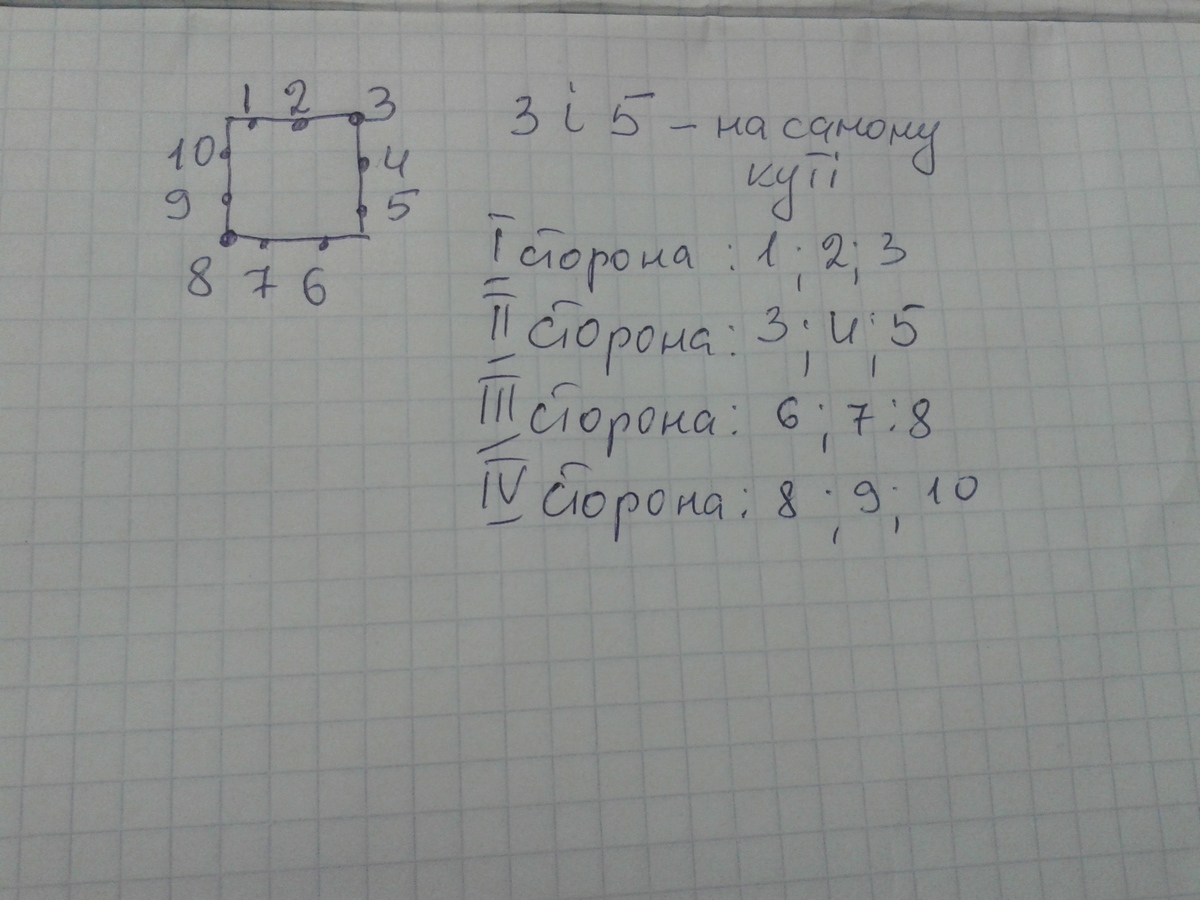 1 2 3
10 4
9 5
8 7 6
3 і 5 – на самому
куті
I сторона : 1; 2; 3
II сторона: 3; 4; 5
III сторона: 6; 7; 8
IV сторона: 8; 9; 10